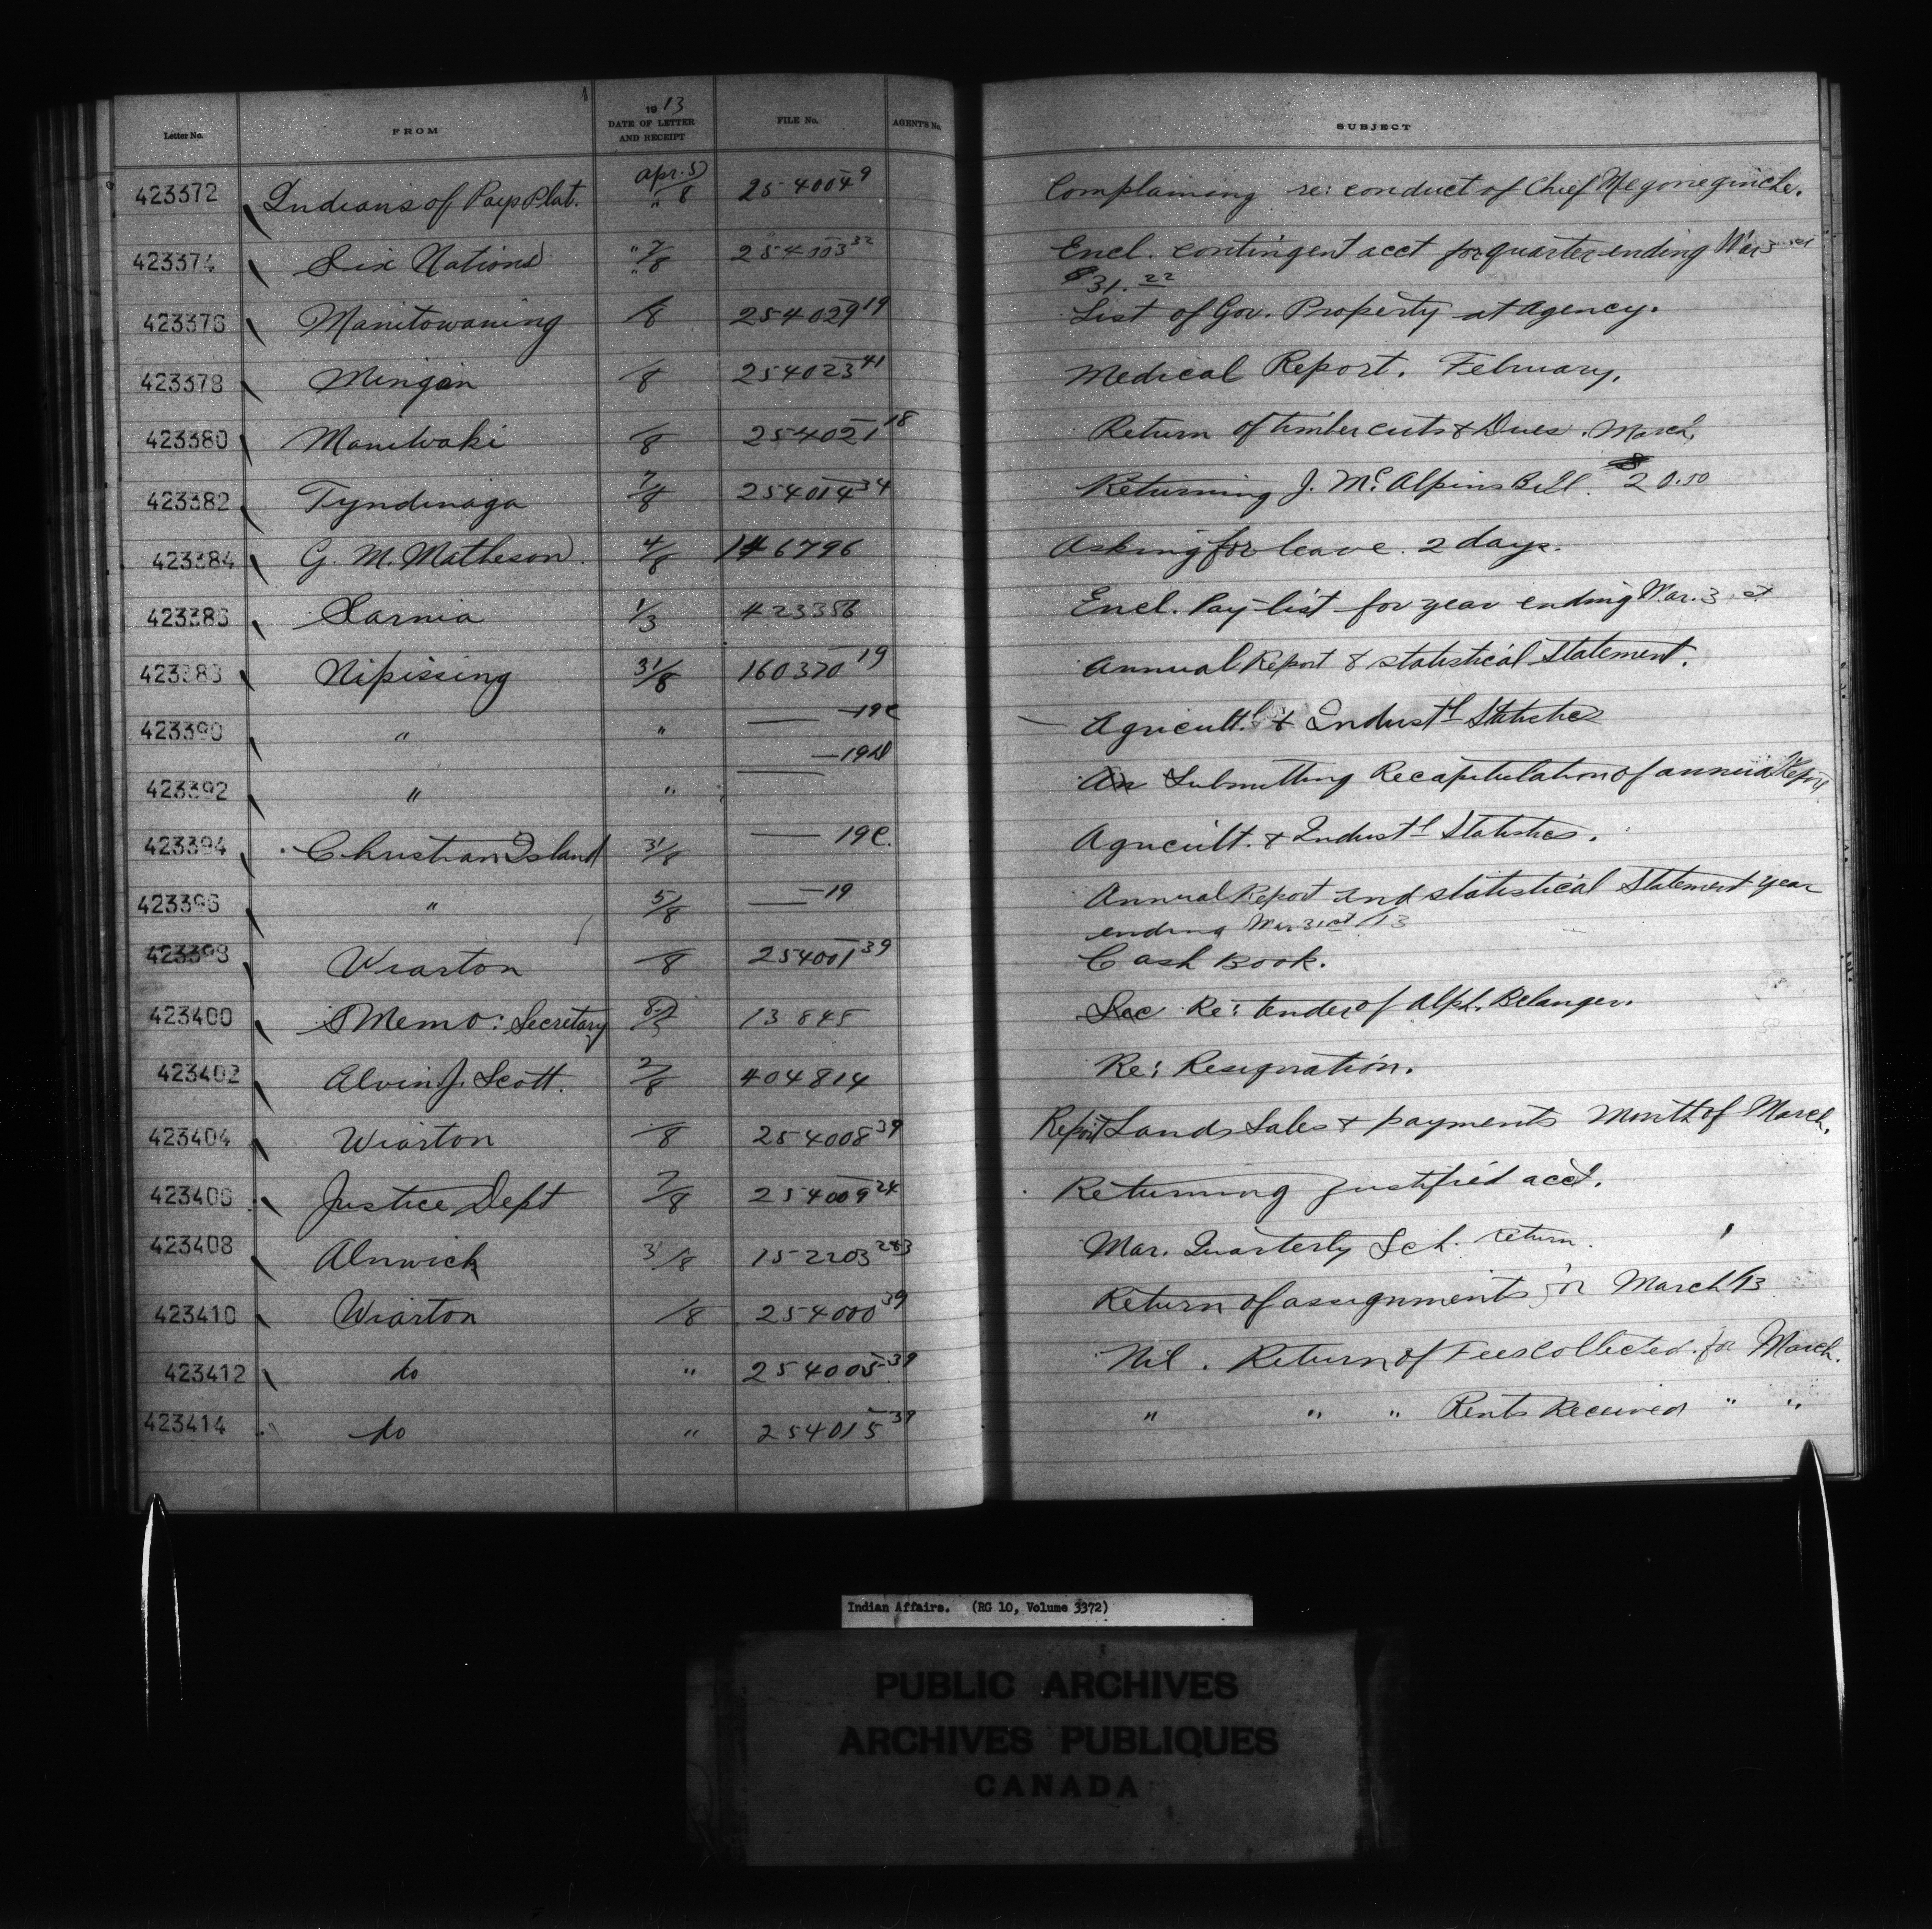 Letter No. FROM 1913 DATE OF LETTER AND RECEIPT FILE No. AGENT'S No. SUBJECT
423372 Indians of Pays Plat. Apr. 5/" 8 254004 9 Complaining re: conduct of Chief
423374 Six Nations " 7/" 8 254003 32 Encl. contingent acct for quarter ending Mar 31st
$31.22
423376 Manitowaning /8 254029 19 List of Gov. Property at Agency.
423378 Mingan /8 254023 41 Medical Report. February.
423380 Maniwaki /8 254021 18 Return of timber cuts & Dues. March,
423382 Tyndinaga 7/8 254014 34 Returning J. McAlpins Bill. $20.50
423384 G. M. Matheson. 4/8 146796 Asking for leave. 2 days.
423386 Sarnia 1/3 423386 Encl. Pay-list for year ending Mar. 31st
423388 Nipissing 31/8 160370 19 Annual Report & statistical Statement.
423390 " " — 19C — Agricultl. & Industl Statistics
423392 " " — 19D An Submitting Recapitulation of annual Report
423394 Christian Island 31/8 — 19C. Agricult. & Industl Statistics.
423396 " 5/8 — 19 Annual Report and statistical Statement year
ending Mar 31st/13
423398 Wiarton /8 254001 39 Cash Book.
423400 Memo: Secretary 13845 Sec Re: tender of Alph. Belanger.
423402 Alvin J. Scott. 7/8 404814 Re: Resignation.
423404 Wiarton /8 254008 39 Report Lands Sales & payments Month of March.
423406 Justice Dept 7/8 254009 24 Returning justified acct.
423408 Alnwick 31/8 152203 283 Mar. Quarterly Sch. return.
423410 Wiarton /8 254000 39 Return of assignments for March/13
423412 do " 254005 39 Nil. Return of Fees collected for March.
423414 do " 254015 39 " " " Rents Received " "
Indian Affairs. (RG 10, Volume 3372)
PUBLIC ARCHIVES
ARCHIVES PUBLIQUES
CANADA